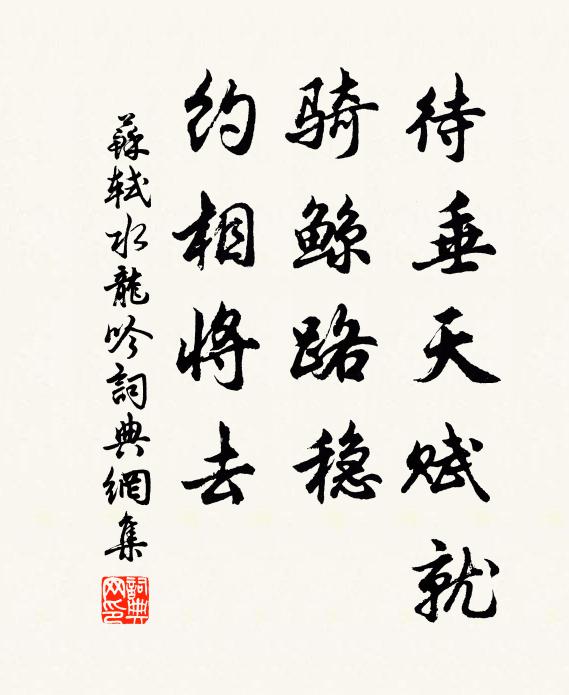 待垂天赋就
骑鲸路稳
约相将去
蘇轼水龍吟詞典網集
詞典网印